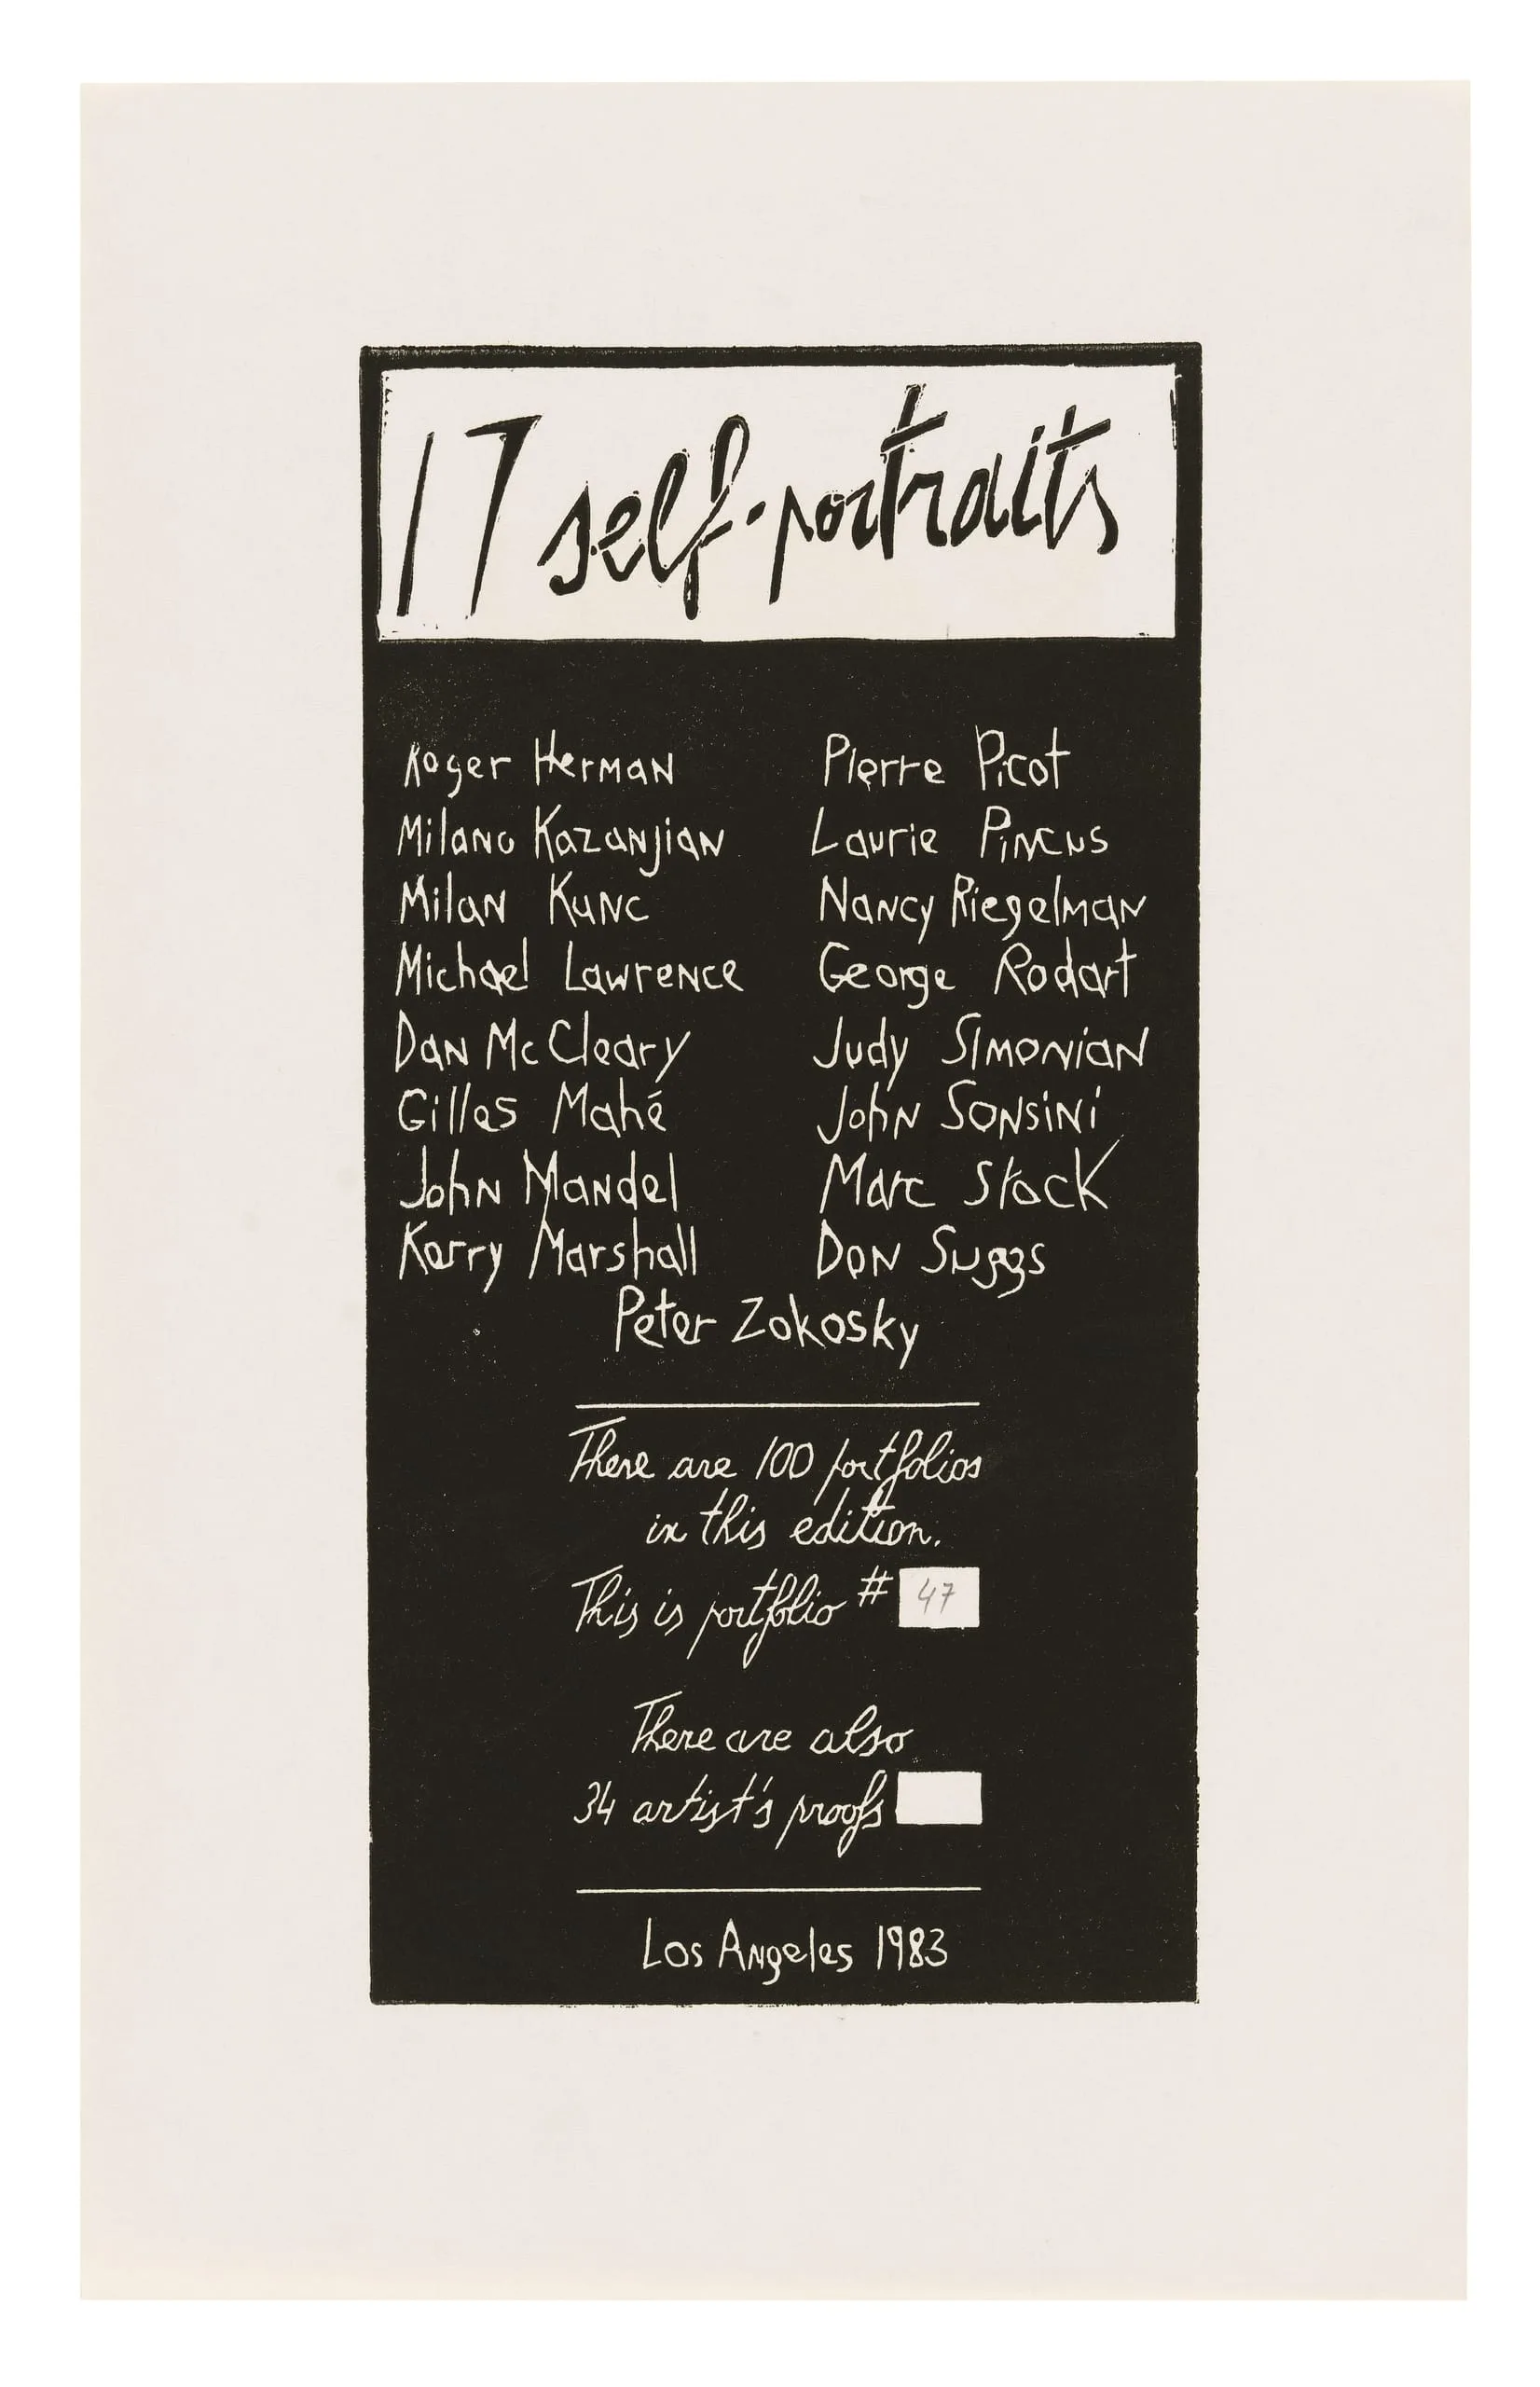 17 self-portraits
Roger Herman
Milano Kazanjian
Milan Kunc
Michael Lawrence
Dan McCleary
Gilles Mahé
John Mandel
Kerry Marshall
Pierre Picot
Laurie Pincus
Nancy Riegelman
George Rodart
Judy Simonian
John Sonsini
Marc Stock
Don Suggs
Peter Zokosky
There are 100 portfolios
in this edition.
This is portfolio # 47
There are also
34 artist's proofs
Los Angeles 1983